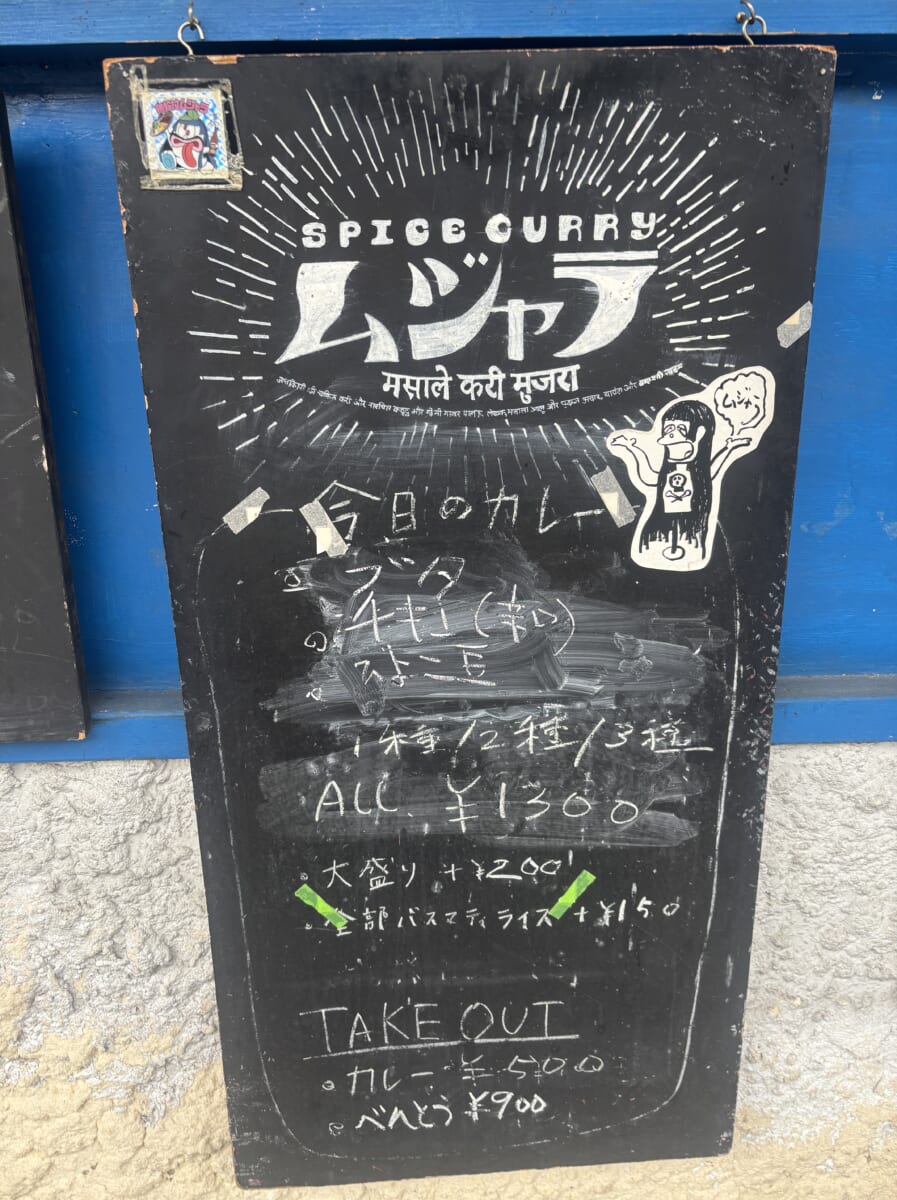 SPICE CURRY
ムジャラ
मसाले करी मुजरा
ムジャラ
今日のカレー
ブタ
チキン(辛い)
1種/2種/3種
ALL ¥1300
・大盛り +¥200
・全部バスマティライス +¥150
TAKE OUT
・カレー ¥500
・べんとう ¥900